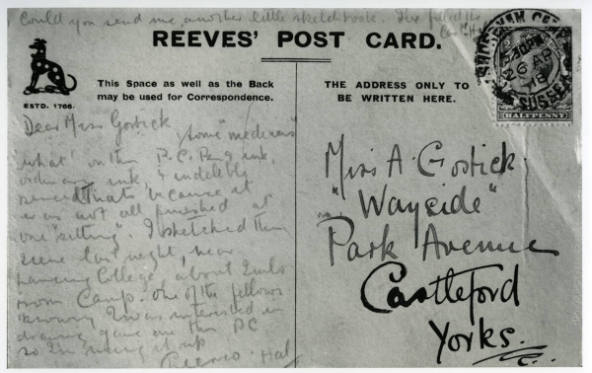 Could you send me another little sketchbook. I've filled the
REEVES' POST CARD.
ESTD. 1766.
This Space as well as the Back
may be used for Correspondence.
THE ADDRESS ONLY TO
BE WRITTEN HERE.
SHOREHAM CAMP
SUSSEX
26 AP
18
HALFPENNY
Dear Miss Gostick
Some "medium
what" on this P.C. Pen & ink,
ordinary ink, & indelible
because it
was not all finished at
one "sitting". I sketched this
scene last night, near
Lancing College about 2 mls
from Camp. One of the fellows
knowing I was interested in
drawing gave me this PC
so I'm using it up
Hal
Miss A. Gostick
"Wayside"
Park Avenue
Castleford
Yorks.